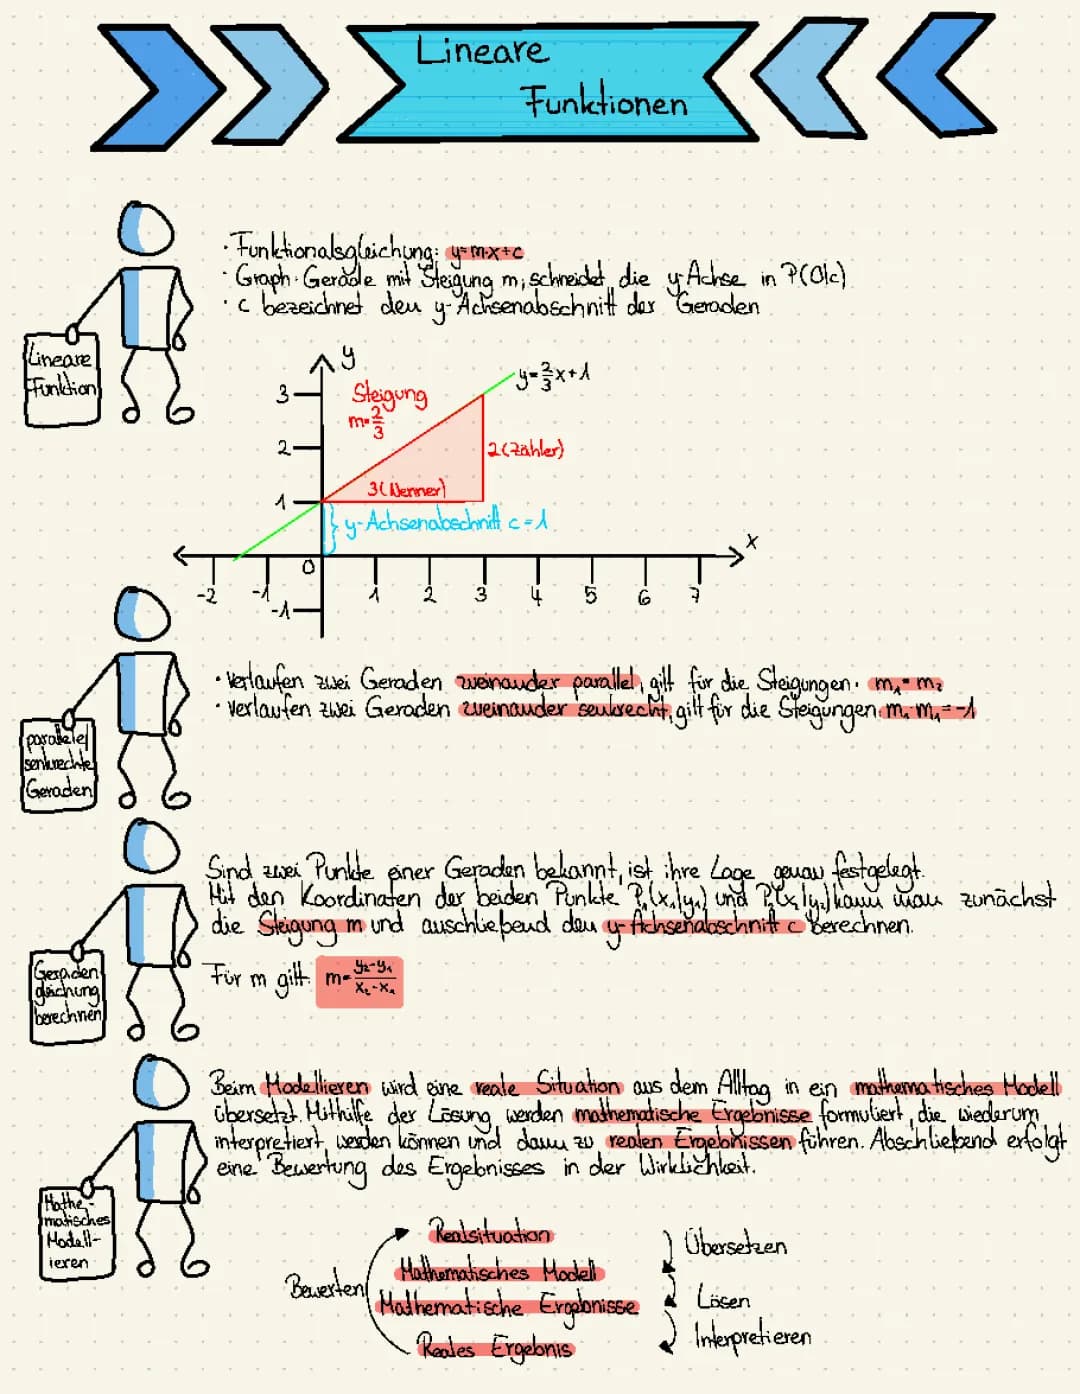 Lineare
Funktionen
· Funktionalsgleichung: y=m·x+c
· Graph: Gerade mit Steigung m, schneidet die y-Achse in P(0|c)
· c bezeichnet den y-Achsenabschnitt der Geraden
Lineare
Funktion
y
3
Steigung
m=2/3
y=2/3x+1
2
2(Zähler)
1
3(Nenner)
y-Achsenabschnitt c=1
x
0
-2 -1 1 2 3 4 5 6 7
-1
· Verlaufen zwei Geraden zueinander parallel, gilt für die Steigungen: m₁=m₂
· Verlaufen zwei Geraden zueinander senkrecht, gilt für die Steigungen m₁·m₂=-1
parallele/
senkrechte
Geraden
Sind zwei Punkte einer Geraden bekannt, ist ihre Lage genau festgelegt.
Mit den Koordinaten der beiden Punkte P₁(x₁|y₁) und P₂(x₂|y₂) kann man zunächst
die Steigung m und anschließend den y-Achsenabschnitt c berechnen.
Für m gilt: m=y₂-y₁/x₂-x₁
Geraden
gleichung
berechnen
Beim Modellieren wird eine reale Situation aus dem Alltag in ein mathematisches Modell
übersetzt. Mithilfe der Lösung werden mathematische Ergebnisse formuliert, die wiederum
interpretiert werden können und dann zu realen Ergebnissen führen. Abschließend erfolgt
eine Bewertung des Ergebnisses in der Wirklichkeit.
Mathe-
matisches
Modell-
ieren
Realsituation
Übersetzen
Mathematisches Modell
Bewerten
Mathematische Ergebnisse
Lösen
Reales Ergebnis
Interpretieren